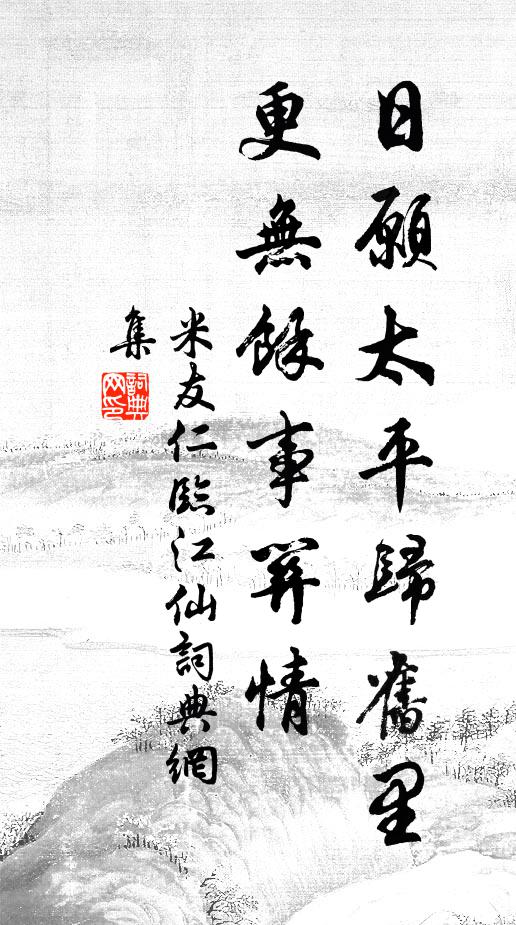 日願太平歸舊里
更無餘事關情
米友仁臨江仙詞典網
集
詞典
网印